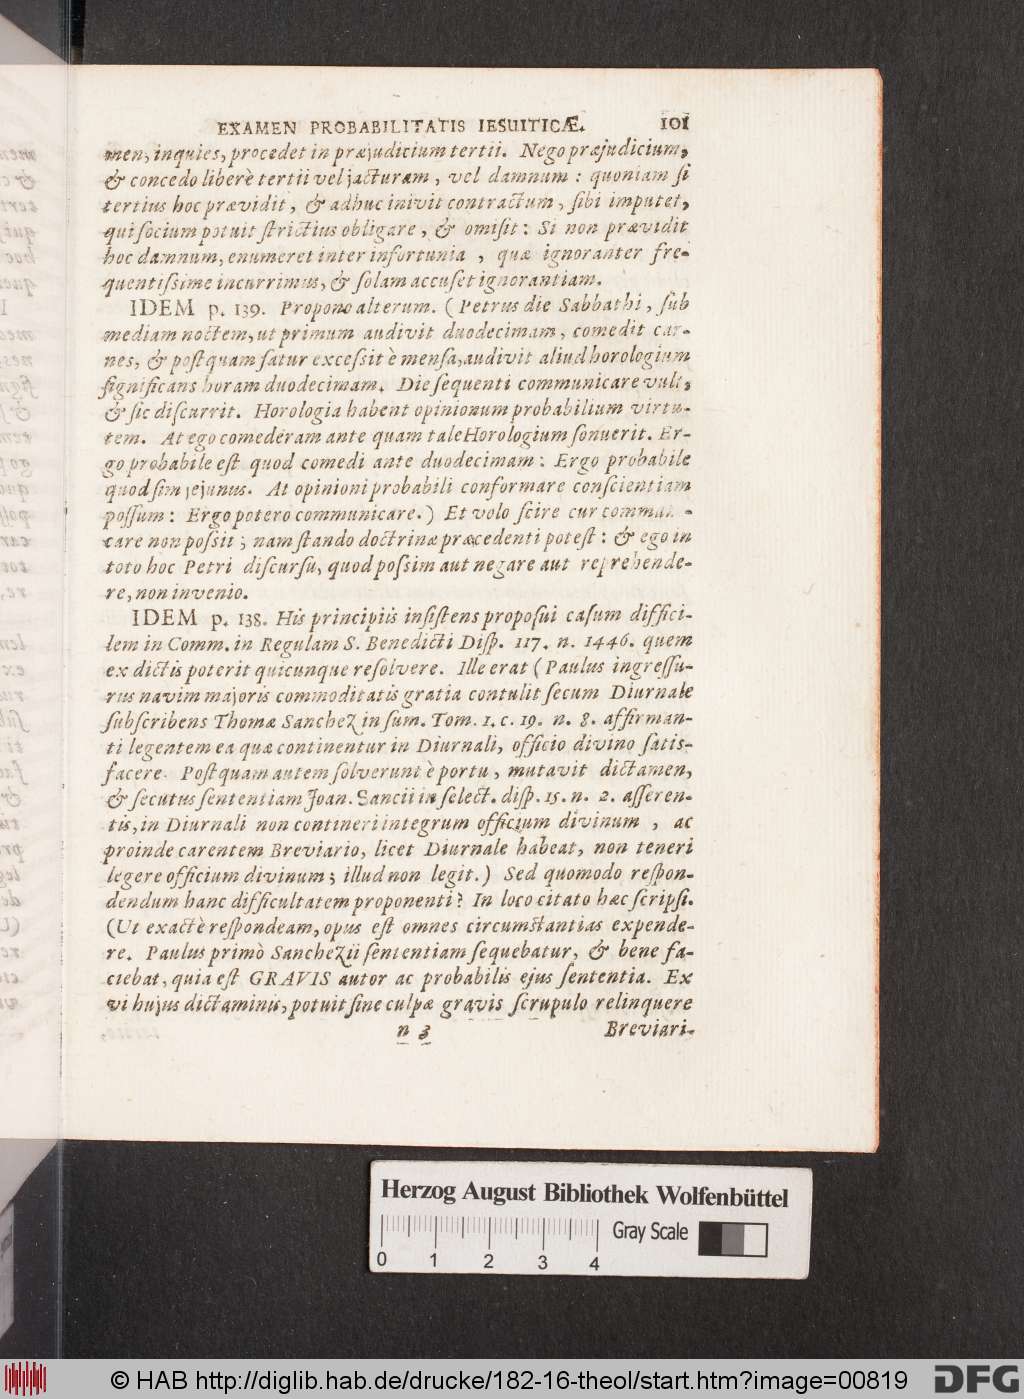 EXAMEN PROBABILITATIS IESUITICÆ. 101
men, inquies, procedet in præjudicium tertii. Nego præjudicium,
& concedo liberè tertii vel jacturam, vel damnum: quoniam si
tertius hoc prævidit, & adhuc inivit contractum, sibi imputet,
qui socium potuit strictius obligare, & omisit: Si non prævidit
hoc damnum, enumeret inter infortunia, quæ ignoranter fre-
quentissime incurrimus, & solam accuset ignorantiam.
IDEM p. 139. Propono alterum. (Petrus die Sabbathi, sub
mediam noctem, ut primum audivit duodecimam, comedit car-
nes, & postquam satur excessit è mensa, audivit aliud horologium
significans horam duodecimam. Die sequenti communicare vult,
& sic discurrit. Horologia habent opinionum probabilium virtu-
tem. At ego comederam ante quam tale Horologium sonuerit. Er-
go probabile est quod comedi ante duodecimam: Ergo probabile
quod sim jejunus. At opinioni probabili conformare conscientiam
possum: Ergo potero communicare.) Et volo scire cur commun -
care non possit; nam stando doctrinæ præcedenti potest: & ego in
toto hoc Petri discursu, quod possim aut negare aut reprehende-
re, non invenio.
IDEM p. 138. His principiis insistens proposui casum diffici-
lem in Comm. in Regulam S. Benedicti Disp. 117. n. 1446. quem
ex dictis poterit quicunque resolvere. Ille erat (Paulus ingressu-
rus navim majoris commoditatis gratia contulit secum Diurnale
subscribens Thomæ Sanchez in sum. Tom. 1. c. 19. n. 8. affirman-
ti legentem ea quæ continentur in Diurnali, officio divino satis-
facere. Postquam autem solverunt è portu, mutavit dictamen,
& secutus sententiam Joan. Sancii in select. disp. 15. n. 2. asseren-
tis, in Diurnali non contineri integrum officium divinum, ac
proinde carentem Breviario, licet Diurnale habeat, non teneri
legere officium divinum; illud non legit.) Sed quomodo respon-
dendum hanc difficultatem proponenti? In loco citato hæc scripsi.
(Ut exactè respondeam, opus est omnes circumstantias expende-
re. Paulus primò Sanchezii sententiam sequebatur, & bene fa-
ciebat, quia est GRAVIS autor ac probabilis ejus sententia. Ex
vi hujus dictaminis, potuit sine culpæ gravis scrupulo relinquere
n 3 Breviari-
Herzog August Bibliothek Wolfenbüttel
Gray Scale
0 1 2 3 4
© HAB http://diglib.hab.de/drucke/182-16-theol/start.htm?image=00819
DFG